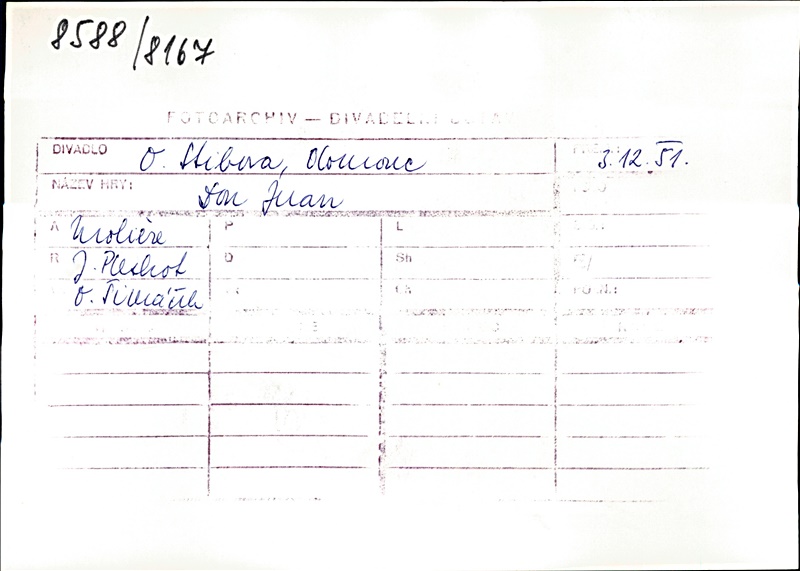 8588/8167
FOTOARCHIV — DIVADELNÍ ÚSTAV
DIVADLO O. Stibora, Olomouc 3.12.51.
NÁZEV HRY: Don Juan
A Molière P L
R J. Pleskot D Sh
O. Šimáček Ch